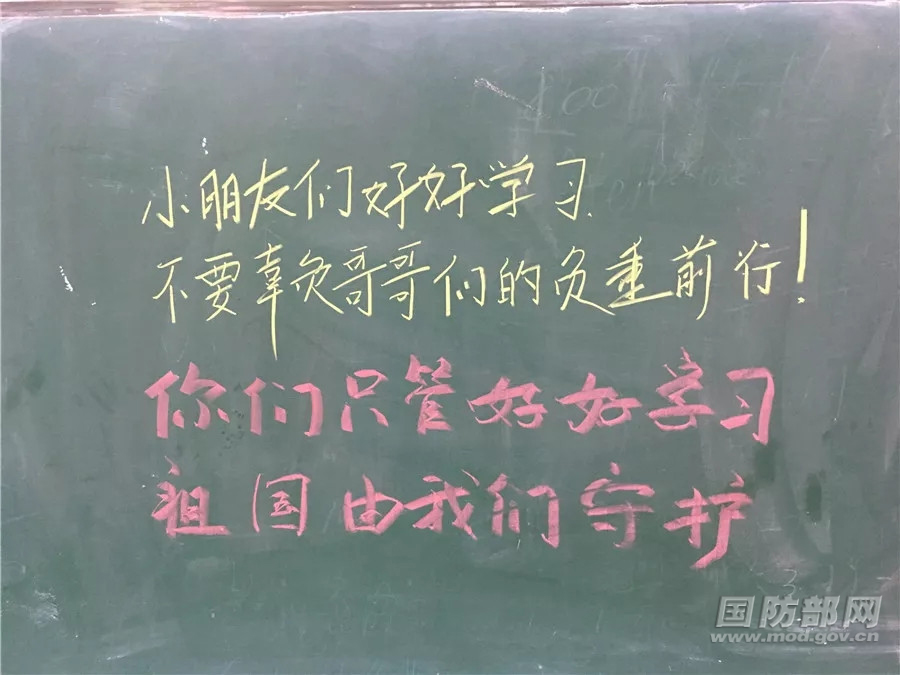 小朋友们好好学习
不要辜负哥哥们的负重前行！
你们只管好好学习
祖国由我们守护
国防部网
www.mod.gov.cn